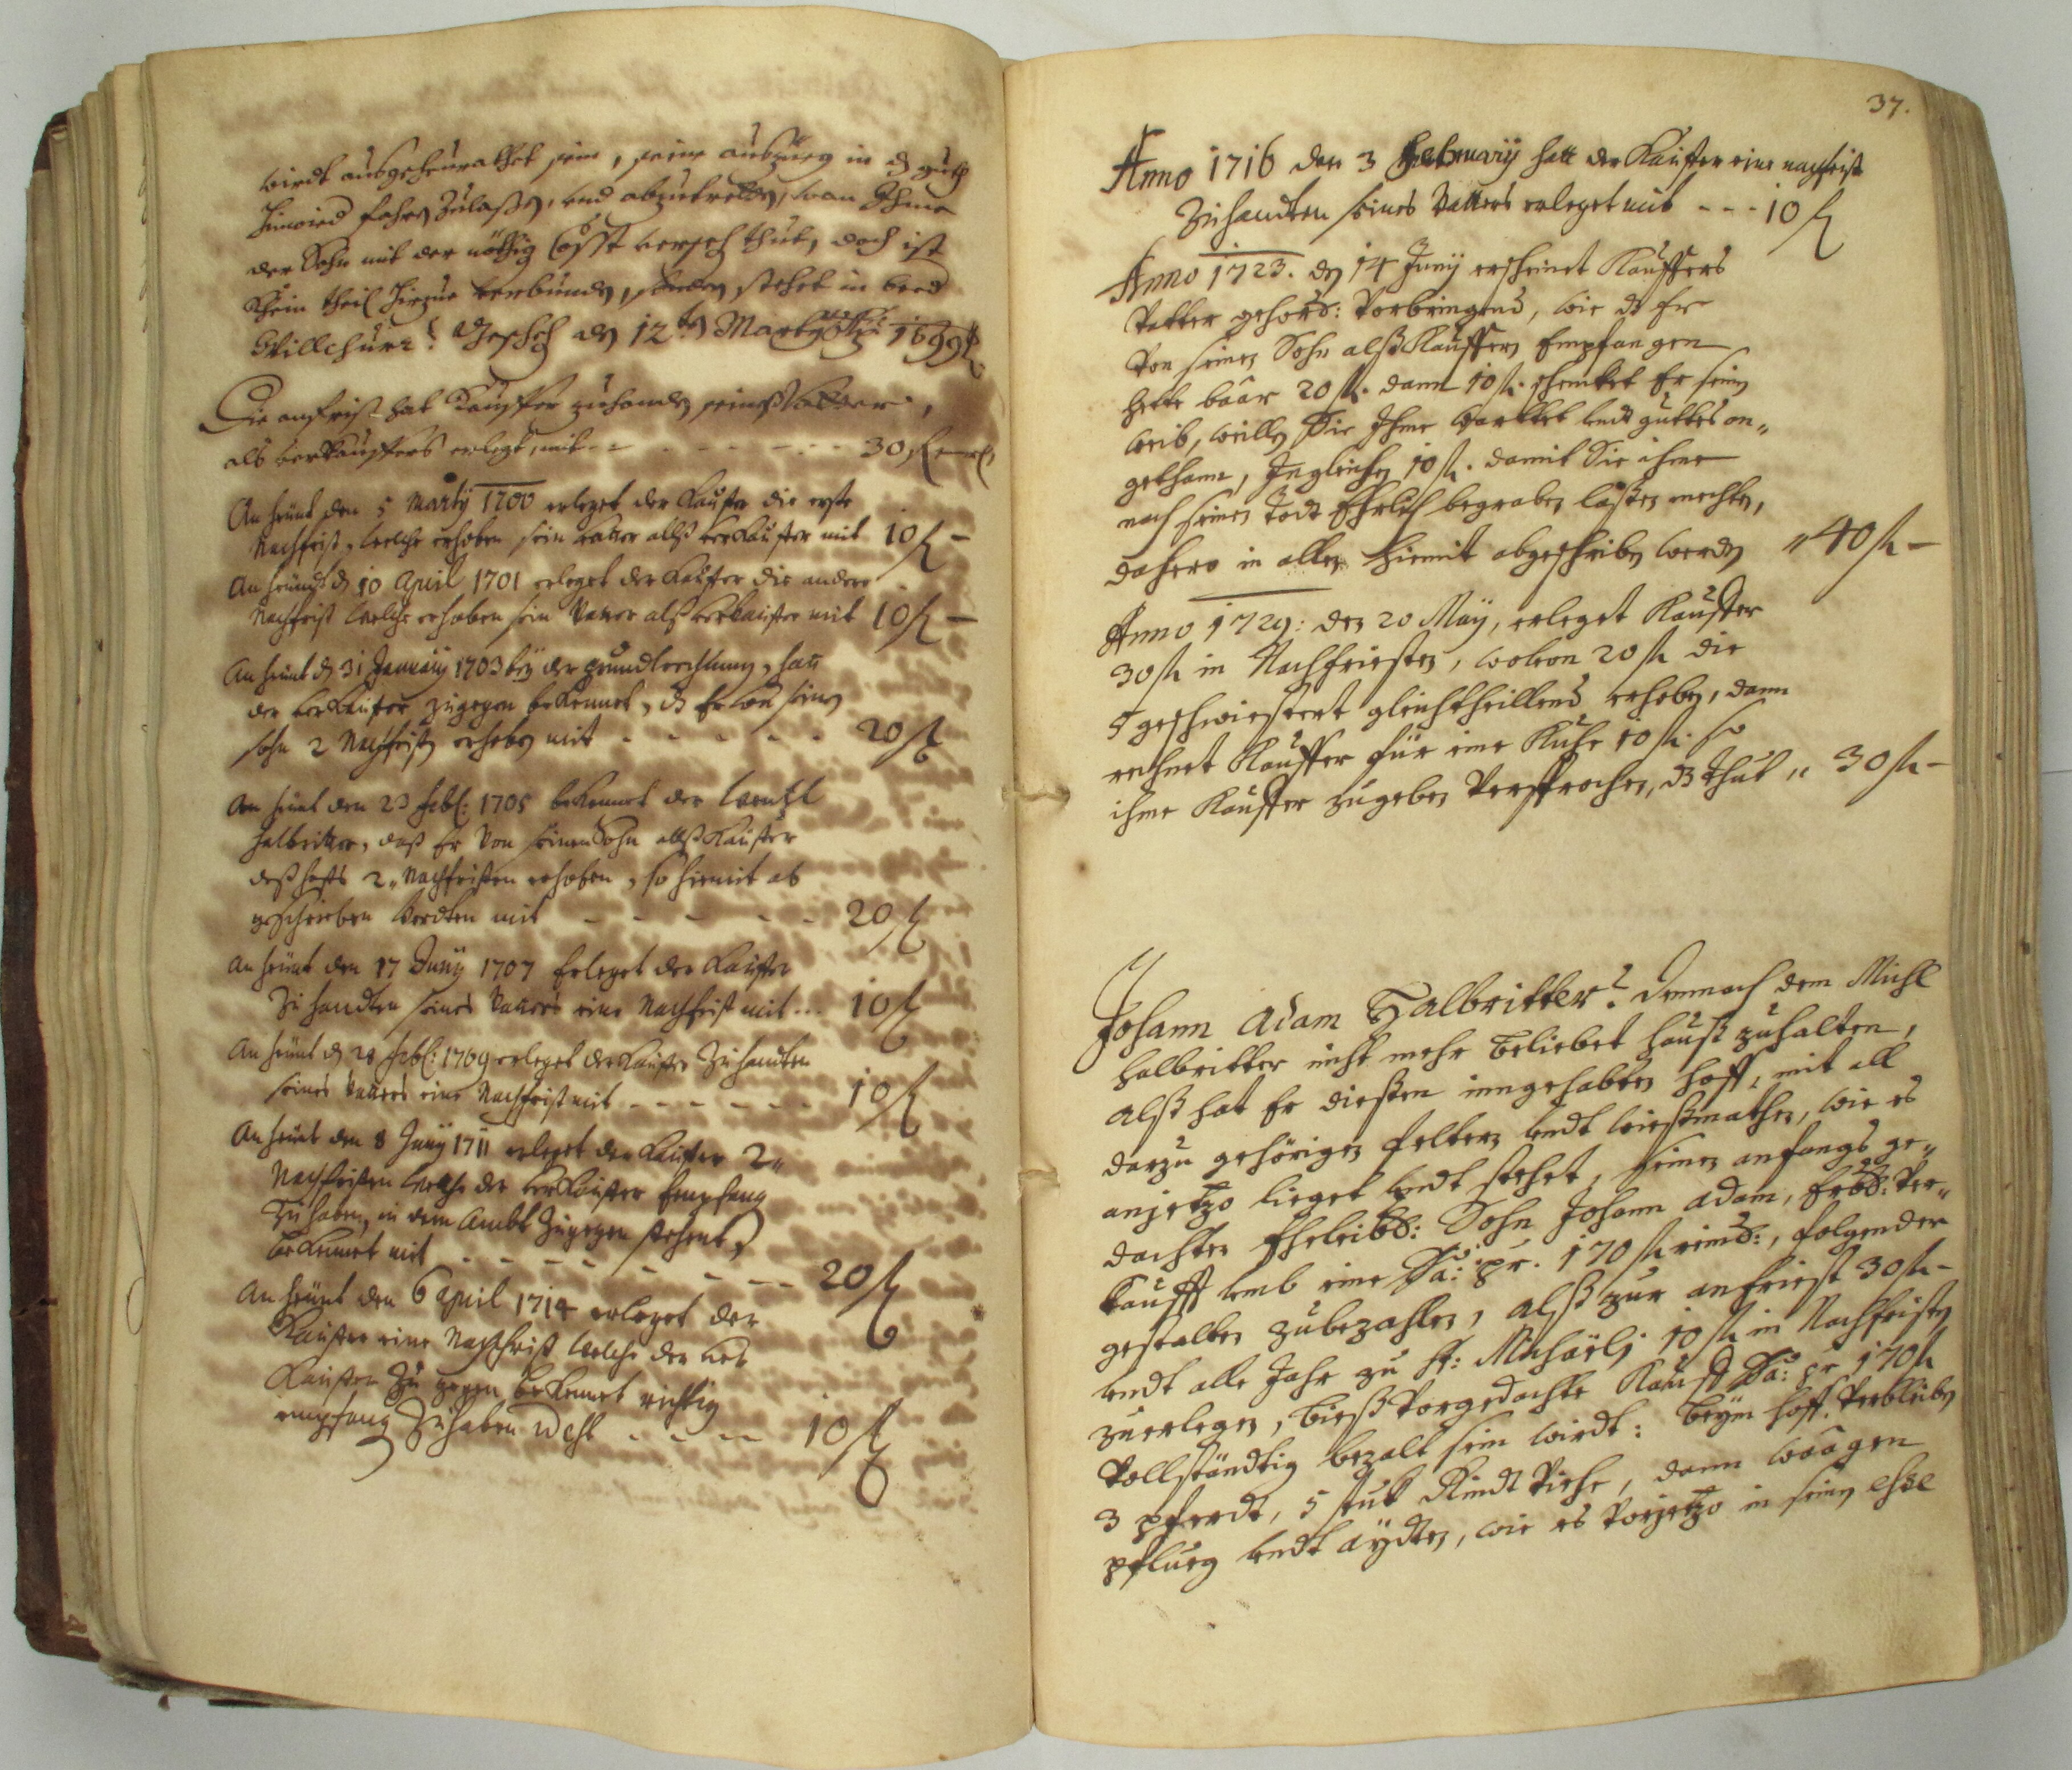 wirdt ausgeheurathet sein, seine auszueg in d guth
hinwied fahrn zulaßen, und abzutretten, wan Ihme
der Sohn mit der nöthig Cosst verseh thut, doch ist
Khein theil hierzue verbunden, sonder stehet in beed
Willchür: Geschch den 12ten Marty 1699
Die anfrist hat Kauffer zuhanden seines Vatter,
als verkauffers erlegt, mit - - - - 30 f
An heünt den 5 Marty 1700 erleget der Kaufter die erste
Nachfrist, welche erhoben sein vatter alß verkaufter mit 10 f -
An heündt d 10 April 1701 erleget der Kaufter die andere
Nachfrist welche erhoben sein Vatter alß verkaufter mit 10 f -
An heünt d 31 January 1703 bey der grundrechnung, hatt
der verkaufter zugegen bekennet, dz Er von seinen
sohn 2 Nachfristen erhoben mit - - - - - 20 f
An heünt den 23 Febl: 1705 bekennet der Wentzl
Halbritter, daß Er von seinen Sohn alß Kaufter
deß hoffs 2 Nachfristen erhoben, so hiemit ab
geschrieben werdten mit - - - - - 20 f
An heünt den 17 Juny 1707 Erleget der Kaufter
Zu handten seines Vatters eine Nachfrist mit ... 10 f
An heünt d 28 Febl: 1709 erleget der Kaufter Zu handten
seines Vatters eine Nachfrist mit - - - - - 10 f
An heünt den 8 Juny 1711 erleget der Kaufter 2
Nachfristen welche der verkaufter Empfang
Zu haben, in dem Ambt Zugegen stehent,
bekennet mit - - - - - - - - 20 f
An heünt den 6 April 1714 erleget der
Kaufter eine Nachfrist welche der ver
Kaufter Zu gegen bekennet richtig
empfang Zu haben - - - - 10 f
37.
Anno 1716 den 3 February hatt der Kaufter eine nachfrist
Zu handten seines Vatters erleget mit - - - 10 f
Anno 1723. den 14 Juny erscheinet Kauffers
Vatter gehors: Vorbringend, wie dz Er
Von seinen Sohn alß Kauffern Empfangen
hette baar 20 f. dann 10 f. schenket Er seinen
weib, weillen Sie Ihme warttet undt guttes an„
gethann, Ingleichen 10 f. damit Sie ihme
nach seinen Todt Ehrlich begraben laßen mechten,
dahero in allen hiemit abgeschriben werden „ 40 f -
Anno 1729: den 20 May, erleget Kauffter
30 f in Nachfristen, wovon 20 f die
5 geschwiestert gleichtheillend erheben, dann
rechnet Kauffer für eine Kuhe 10 f. so
ihme Kauffer zugeben Versprochen, dz thut „ 30 f -
Johann Adam Halbritter. Demnach dem Michl
Halbritter nicht mehr beliebet hauß zuhalten,
alß hat Er dießen inngehabten hoff, mit all
darzu gehörigen feltern undt wießmathen, wie es
anjetzo lieget undt stehet, seinen anfangs ge„
dachten Eheleibl: Sohn Johann Adam, Erbl: Ver„
kaufft umb eine Sa: pr. 170 f reinl:, folgender
gestalten zubezahlen, alß zur anfriest 30 f -
undt alle Jahr zu St: Michaëli 10 f in Nachfristen
zuerlegen, bieß vorgedachte Kauff Sa: pr 170 f
Vollständtig bezalt sein wirdt: beym hoff. Verbleiben
3 pferdt, 5 stuk Rindt Viehe, dann waagen
pflueg undt aydten, wie es vorjetzo in seinen esse